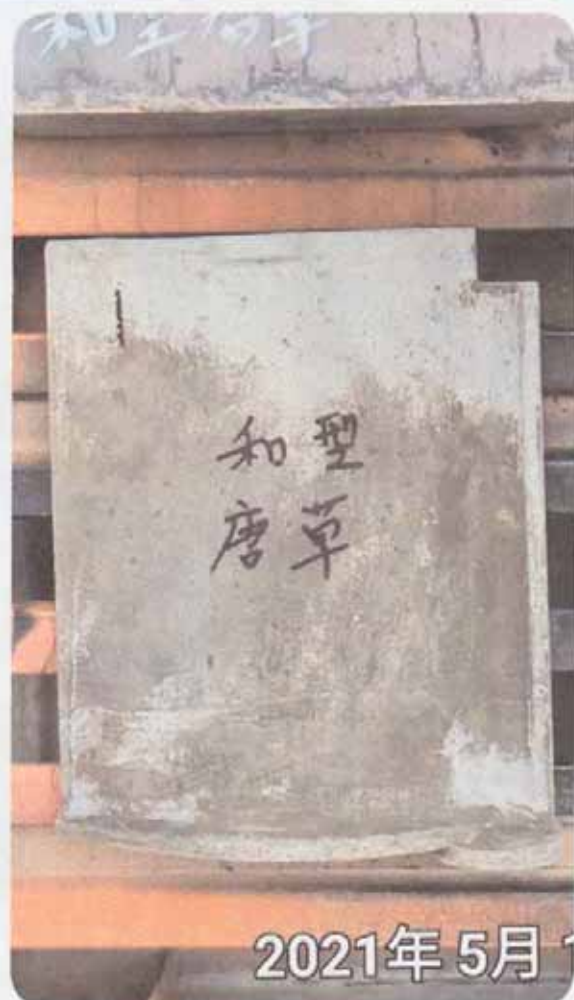 和型
唐草
2021年 5月 1